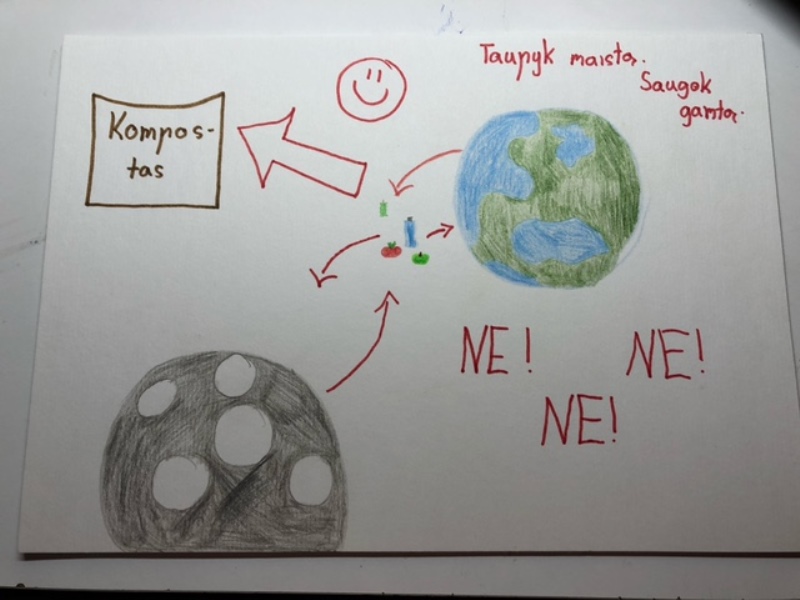 Taupyk maistą.
Saugok
gamtą.
Kompos-
tas
NE! NE!
NE!